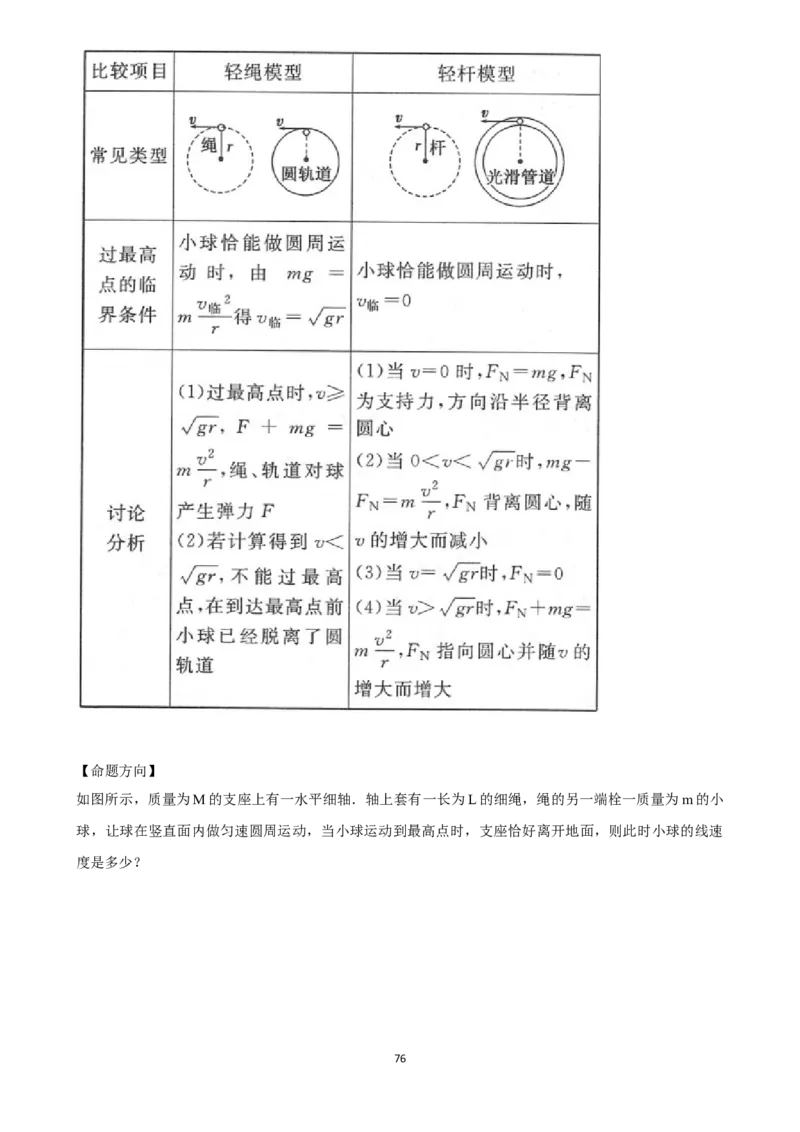 比较项目 轻绳模型 轻杆模型
常见类型
v 绳 r
v 圆轨道
v r 杆
v 光滑管道
过最高
点的临
界条件
小球恰能做圆周运
动时，由 mg =
m v临²/r 得 v临 = √gr
小球恰能做圆周运动时，
v临=0
讨论
分析
(1)过最高点时,v≥
√gr, F + mg =
m v²/r,绳、轨道对球
产生弹力 F
(2)若计算得到 v<
√gr,不能过最高
点,在到达最高点前
小球已经脱离了圆
轨道
(1)当 v=0 时,FN=mg,FN
为支持力,方向沿半径背离
圆心
(2)当 0<v<√gr时,mg-
FN=m v²/r,FN 背离圆心,随
v 的增大而减小
(3)当 v=√gr时,FN=0
(4)当 v>√gr时,FN+mg=
m v²/r,FN 指向圆心并随v 的
增大而增大
【命题方向】
如图所示，质量为M的支座上有一水平细轴．轴上套有一长为L的细绳，绳的另一端栓一质量为m的小
球，让球在竖直面内做匀速圆周运动，当小球运动到最高点时，支座恰好离开地面，则此时小球的线速
度是多少？
76